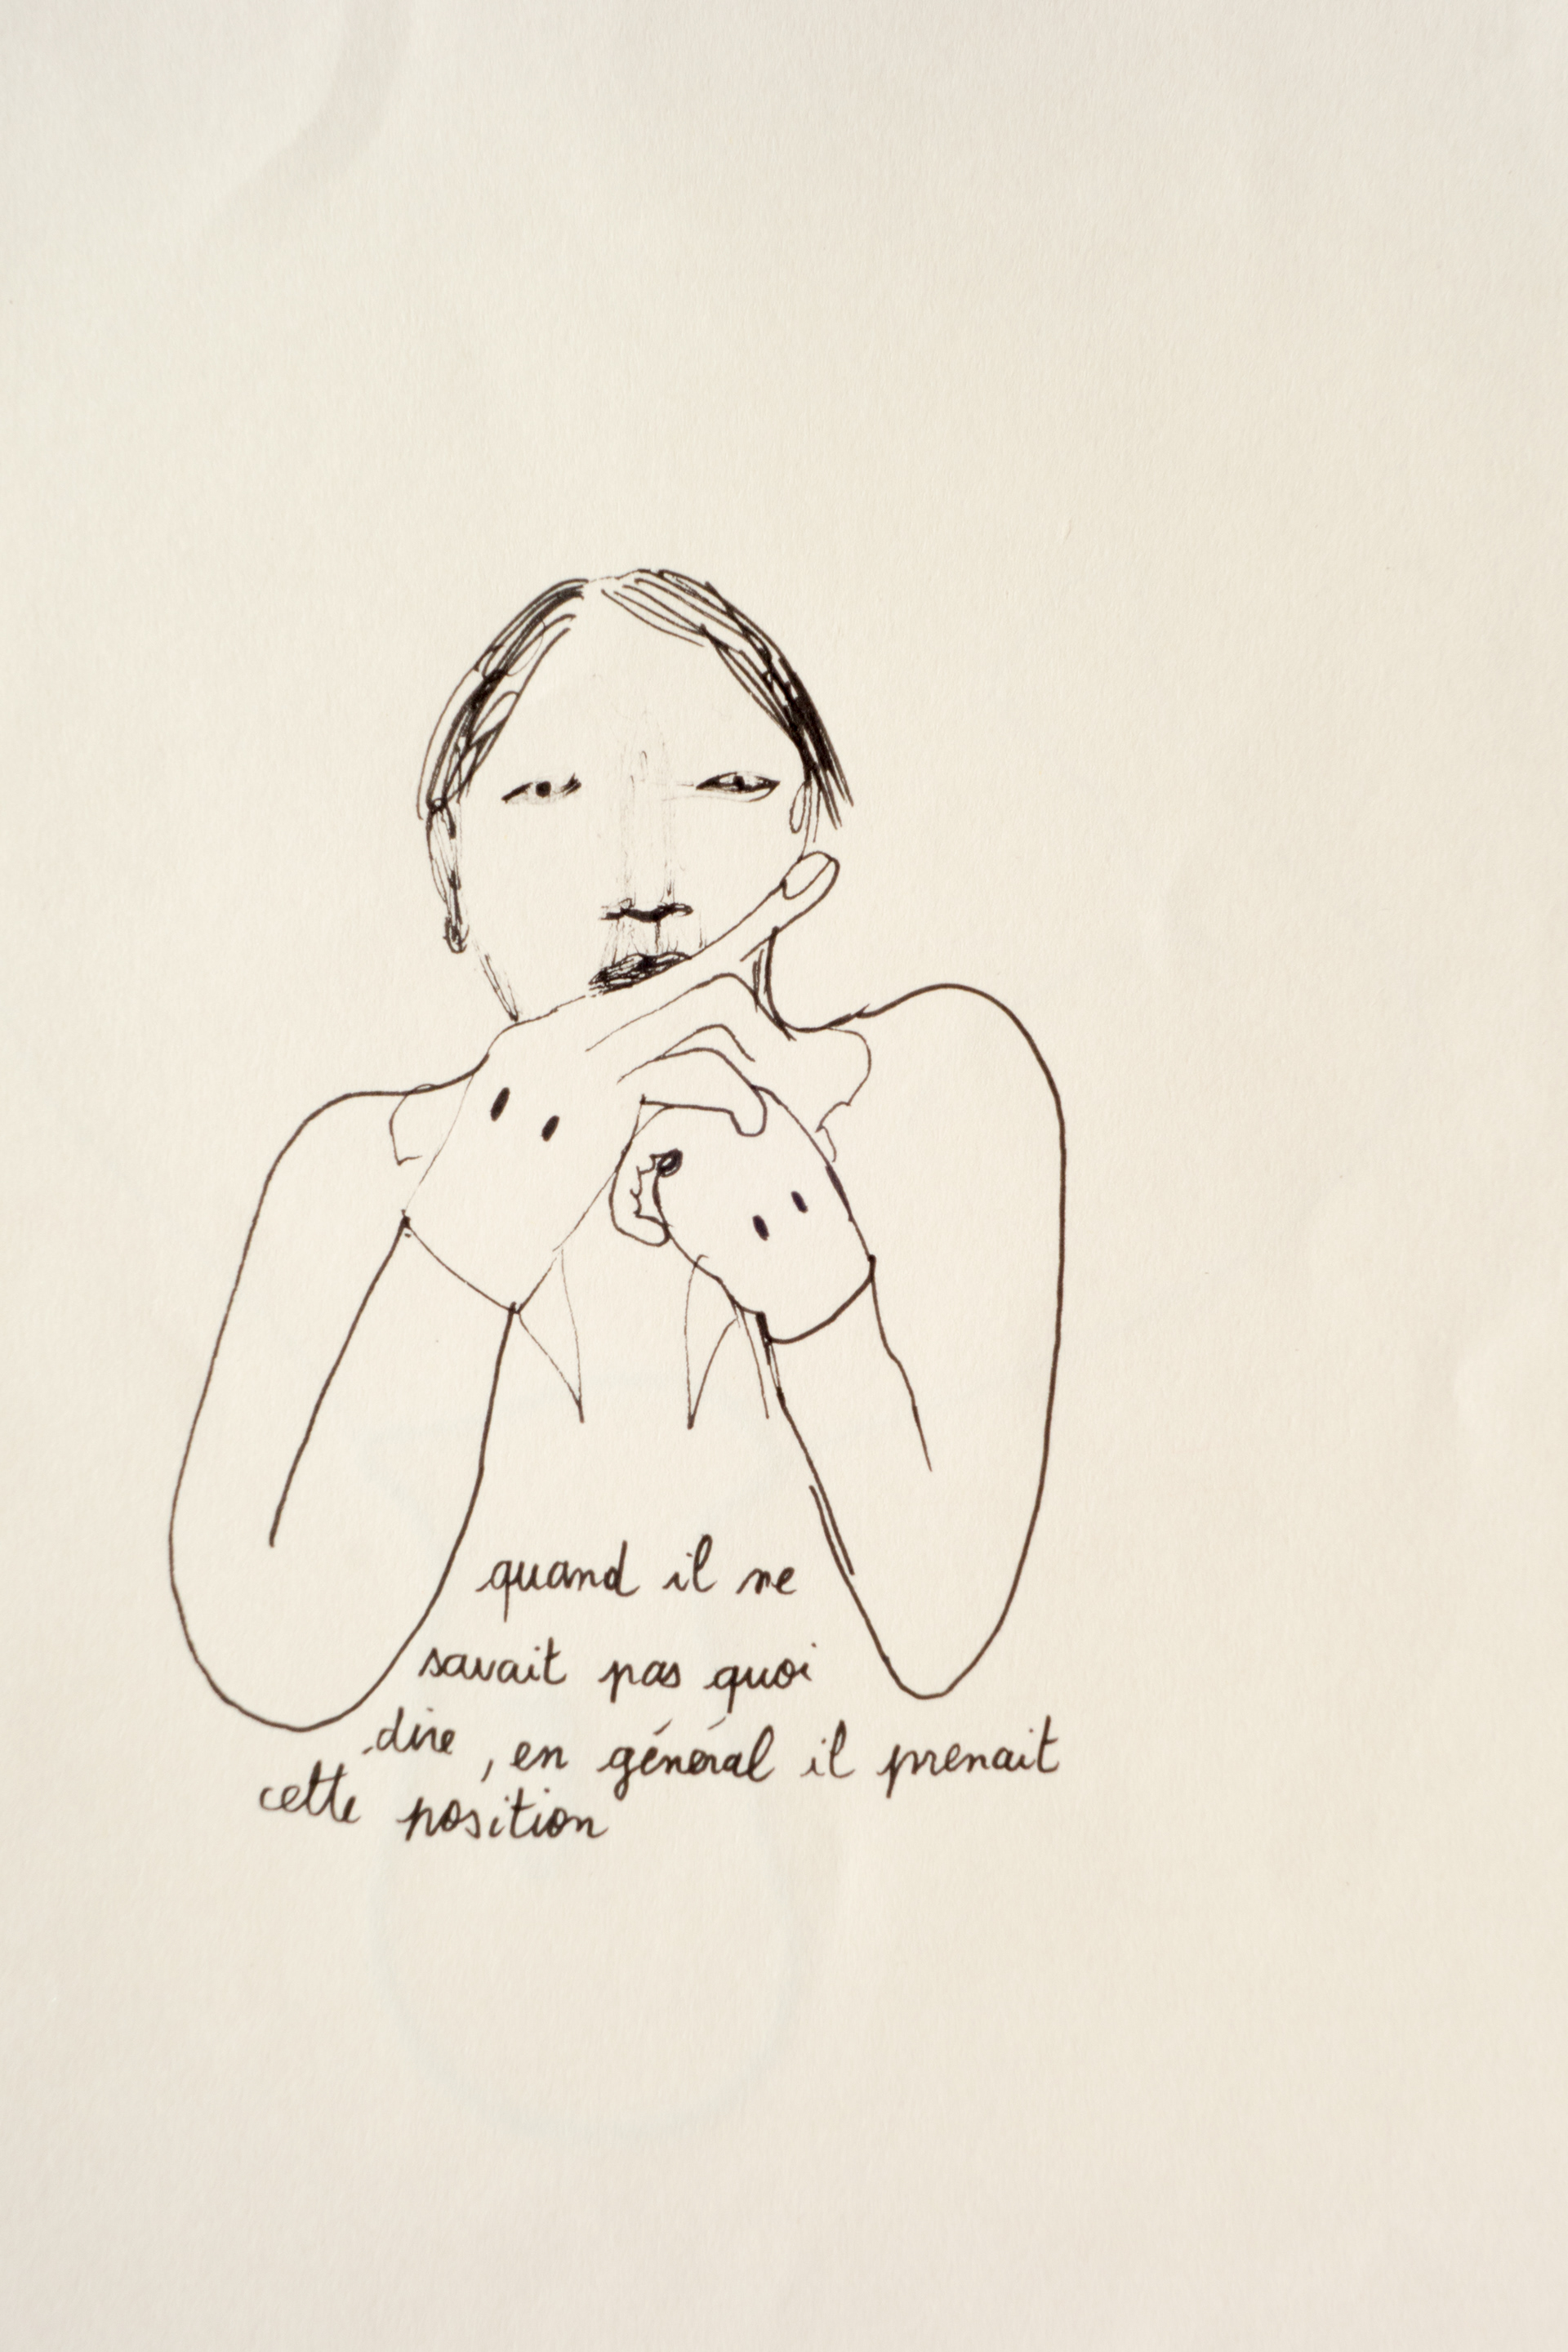 quand il ne
savait pas quoi
dire, en général il prenait
cette position